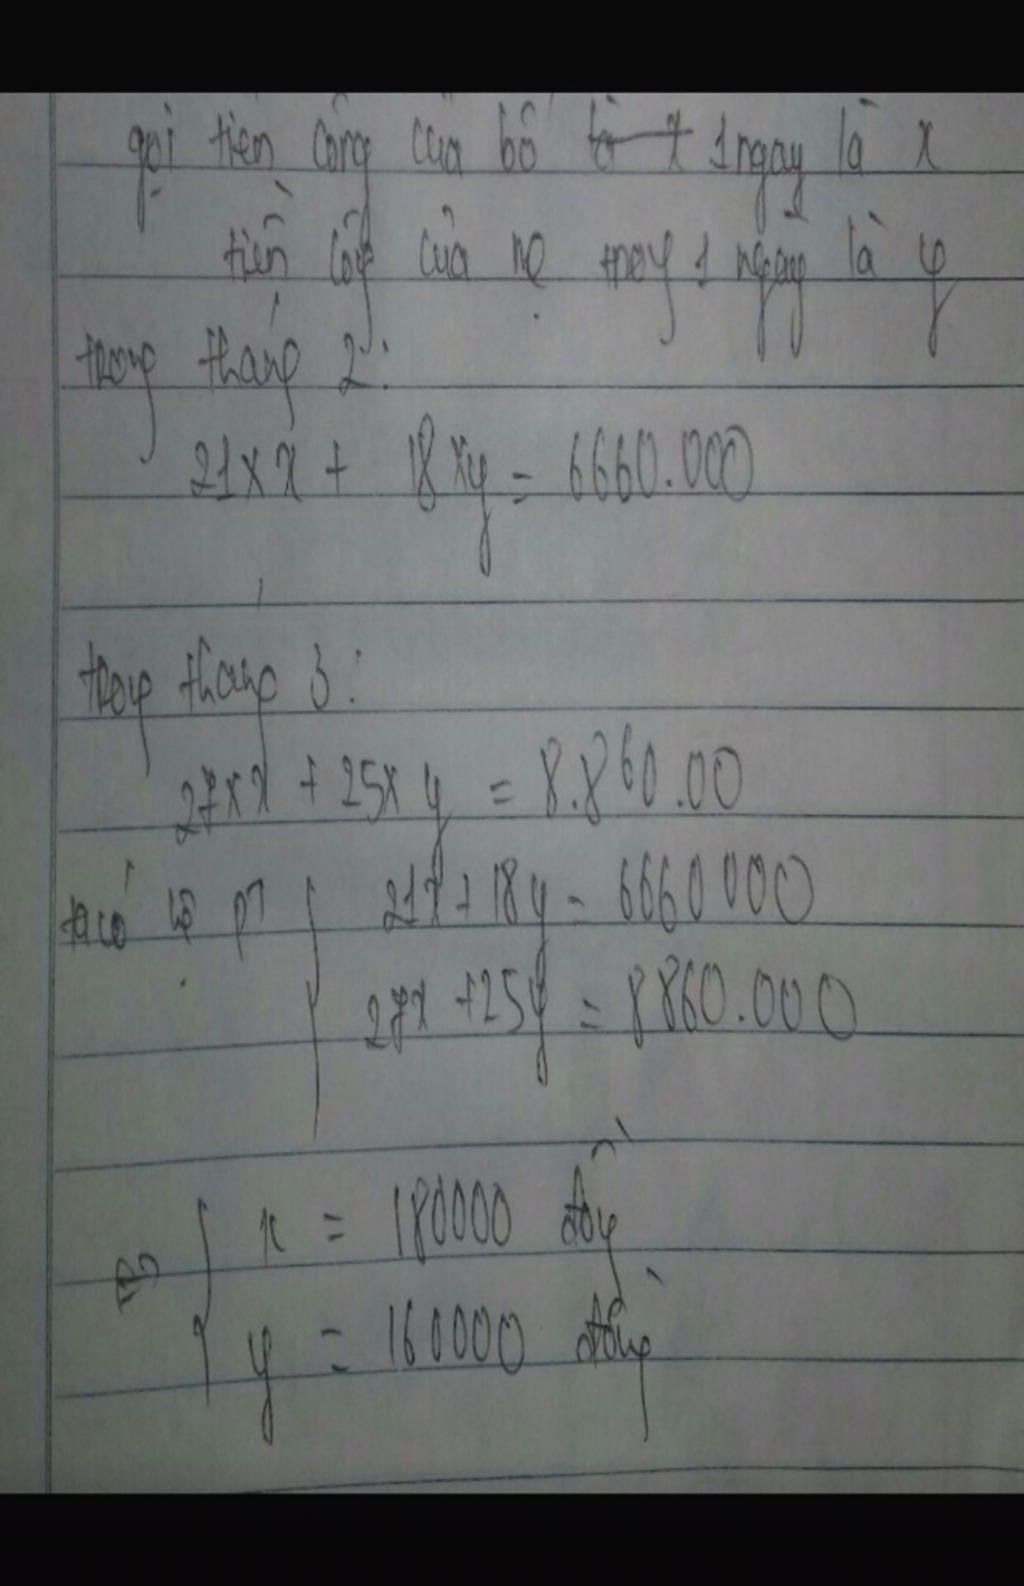 gọi tiền công của bố 1 ngày là x
tiền công của mẹ trong 1 ngày là y
trong tháng 2:
21 x x + 18 x y = 6660.000
trong tháng 3:
27 x x + 25 x y = 8.860.00
ta có hệ pt { 21x + 18y = 6660000
27x + 25y = 8860.000
=> { x = 180000 đồng
y = 160000 đồng